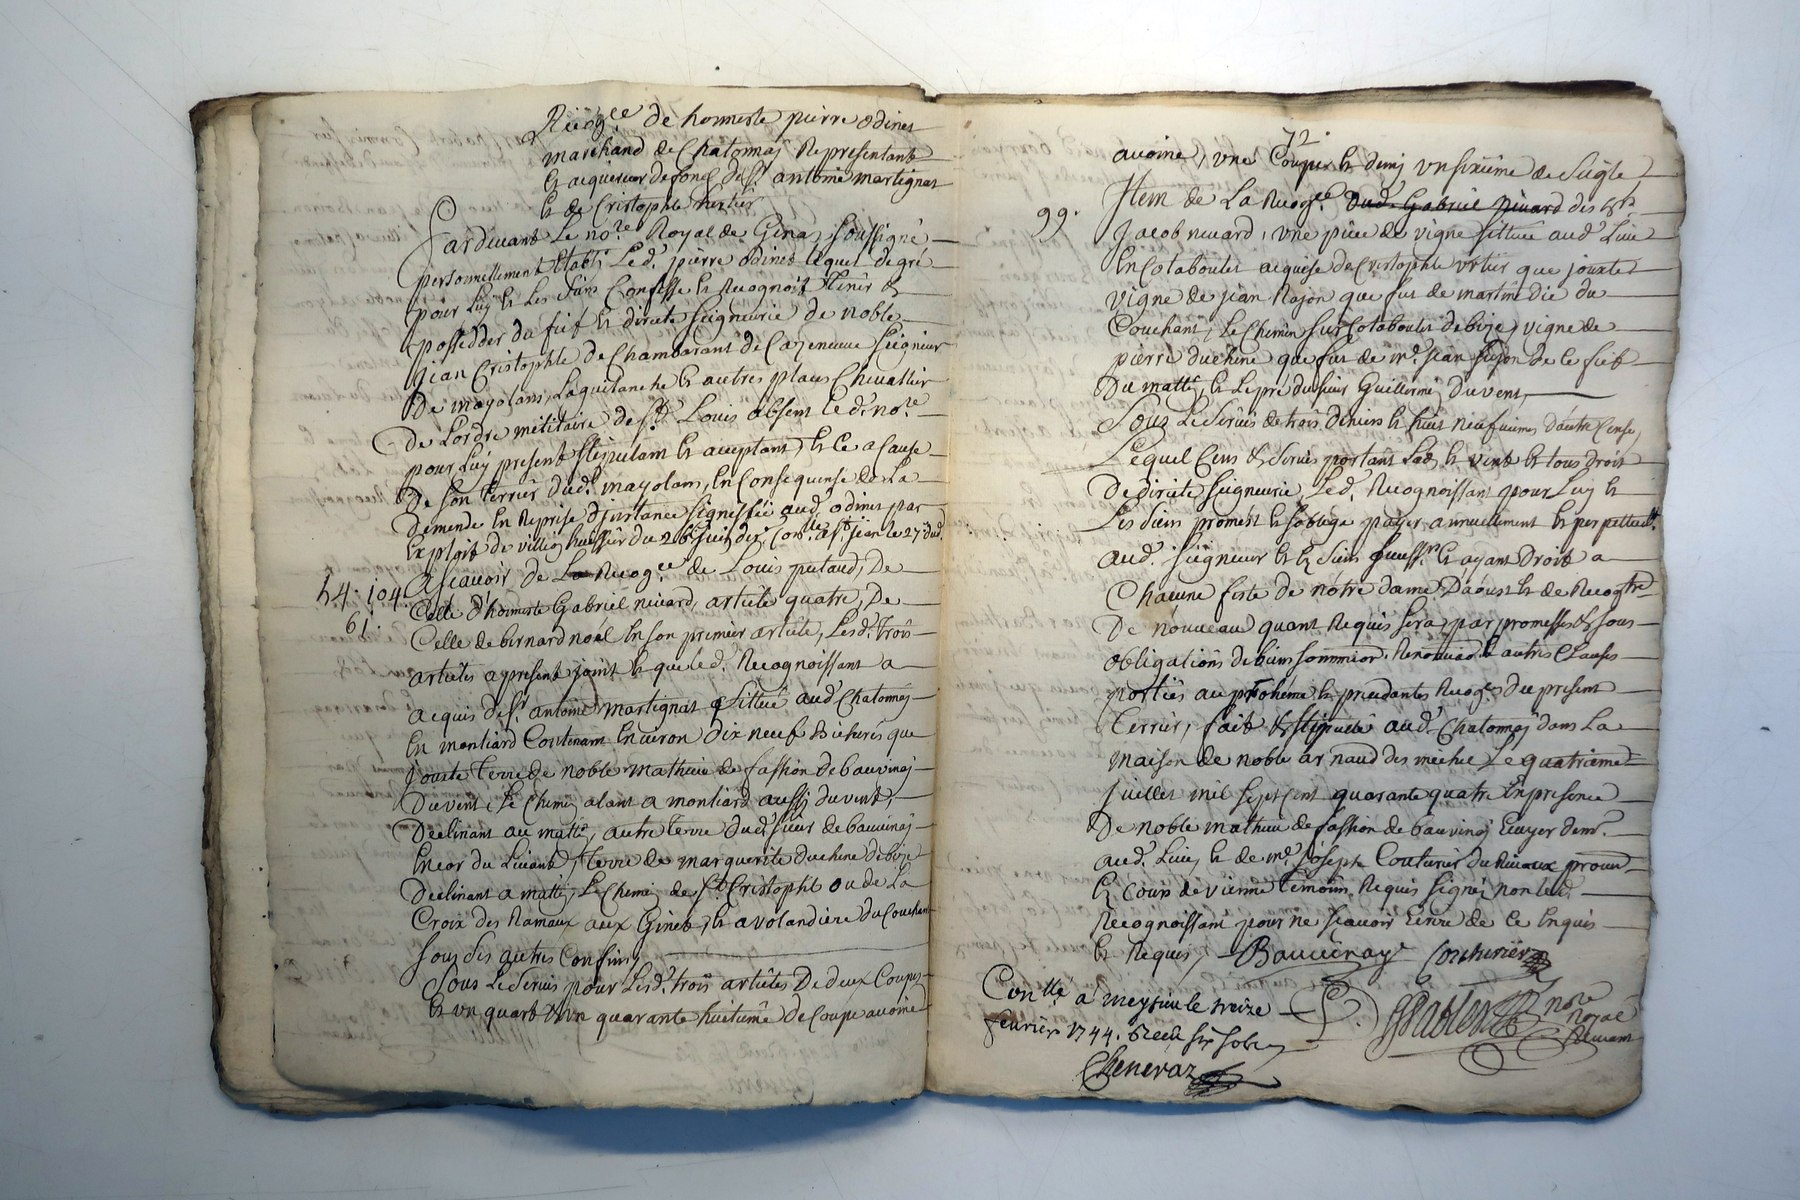 Recog.ce de honneste pierre odinet
marchand de Chatonnaÿ Representant
et acquereur de fond du Sr. antoine martignat
et de Cristophle vertier
Pardevant Le no.re Royal de Genas, soussigné
personnellement Etabli Led. pierre odinet lequel de gré
pour Luy et Les siens Confesse et Recognoit Tenir et
posseder du fief et directe seigneurie de noble
jean Cristophle de Chambarant de Cazeneuve seigneur
De mayolans, et autres places Chevallier
De Lordre militaire de St. Louis absent led. no.re
pour Luy present stipulant et acceptant, et Ce a Cause
De son terrier dud. mayolans, En Consequense de La
Demende En Reprise d'instance signiffiée aud. odinet par
Exploit de huissier du 26 juin St. jean le 27 dud.
Ascavoir de La Recog.ce de Louis putaud, De
54. 104. Celle d'honneste Gabriel nivard, article quatre, De
61. Celle de bernard noël En son premier article, Lesd. trois
articles apresent joint et que led. Recognoissant a
acquis de Sr. antoine martignat sittué aud. Chatonnaÿ
En montiard Contenant Environ dix neuf Bicherés que
jouxte terre de noble mathieu de fassion de bauvinaÿ
Du vent, Le Chemin alant a montiard aussÿ du vent,
Declinant au matin, autre terre dud. sieur de bauvinaÿ
Encor du Levant, Terre de marguerite duchene de bize
Declinant a matin, Le Chemin de St. Cristophle ou de La
Croix des Ramaux aux Ginet, et a volandiere du Couchant
sous des autres Confins,
Sous Le servis pour Lesd. trois articles De deux Coupes
Et vn quart et vn quarante huitieme de Coupe avoine
72.
avoine, vne Coupe et demy vn sixieme de seigle,
99. Item de La Recog.ce dud. Gabriel nivard des
Jacob nivard, vne piece de vigne sittuée aud. Lieu
En Cotaboulet acquise de Cristophle vrtier que jouxte
vigne de jean Rajon que fut de martin die du
Couchant, Le Chemin sur Cotaboulet de bize, vigne de
pierre duchene que fut de me. jean de ce fieb
Du matin, et Le pré du sieur Guillermé du vent,
Sous Le servis de trois deniers et huit neufviemes d'autre Cense,
Lequel Cens et servis portant Lods et vente et tous droit
De directe seigneurie, Led. Recognoissant pour Luy et
Les siens promest et s'oblige payer annuellement et perpetuelt.
aud. seigneur et es siens success.rs et ayant Droit a
Chacune feste de nôtre dame D'aoust et de Recog.tre
De nouveau quant Requis sera, par promesses et sous
obligations de biens soummion, Renonciad. et autres Clauses
portées au prohéme et precedantes Recog.es du present
terrier, fait et stipullé aud. Chatonnaÿ dans La
maison de noble arnaud des meche Le quatrieme
juillet mil sept cent quarante quatre En presence
De noble mathieu de fassion de bauvinaÿ Ecuyer dem.t
aud. Lieu, et de me. joseph Couturier du Rivaux procur.
Es Cour de vienne temoins Requis signés non led.
Recognoissant pour ne scavoir Ecrire de Ce Enquis
et Requis, Bauvinay Couturier
Con.llé a meyrieu le treize
fevrier 1744. Receu six sols
Cheneraz
no.re
Royal
Recevant